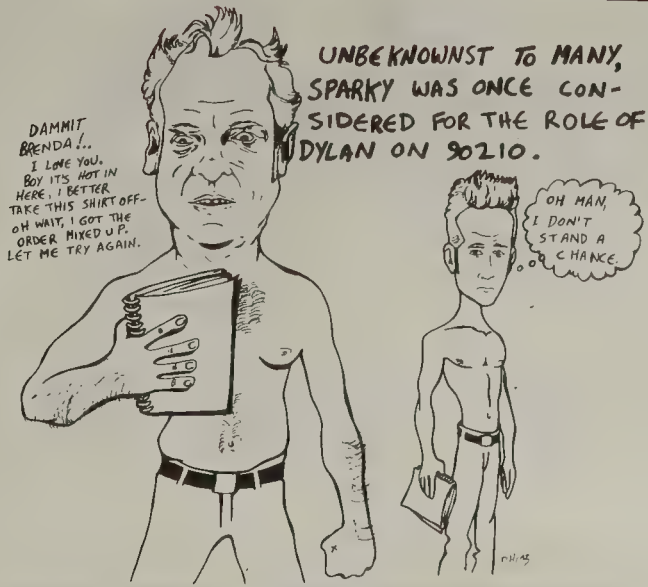 UNBEKNOWNST TO MANY,
SPARKY WAS ONCE CON-
SIDERED FOR THE ROLE OF
DYLAN ON 90210.
DAMMIT
BRENDA!..
I LOVE YOU.
BOY IT'S HOT IN
HERE, I BETTER
TAKE THIS SHIRT OFF-
OH WAIT, I GOT THE
ORDER MIXED UP.
LET ME TRY AGAIN.
OH MAN,
I DON'T
STAND A
CHANCE.